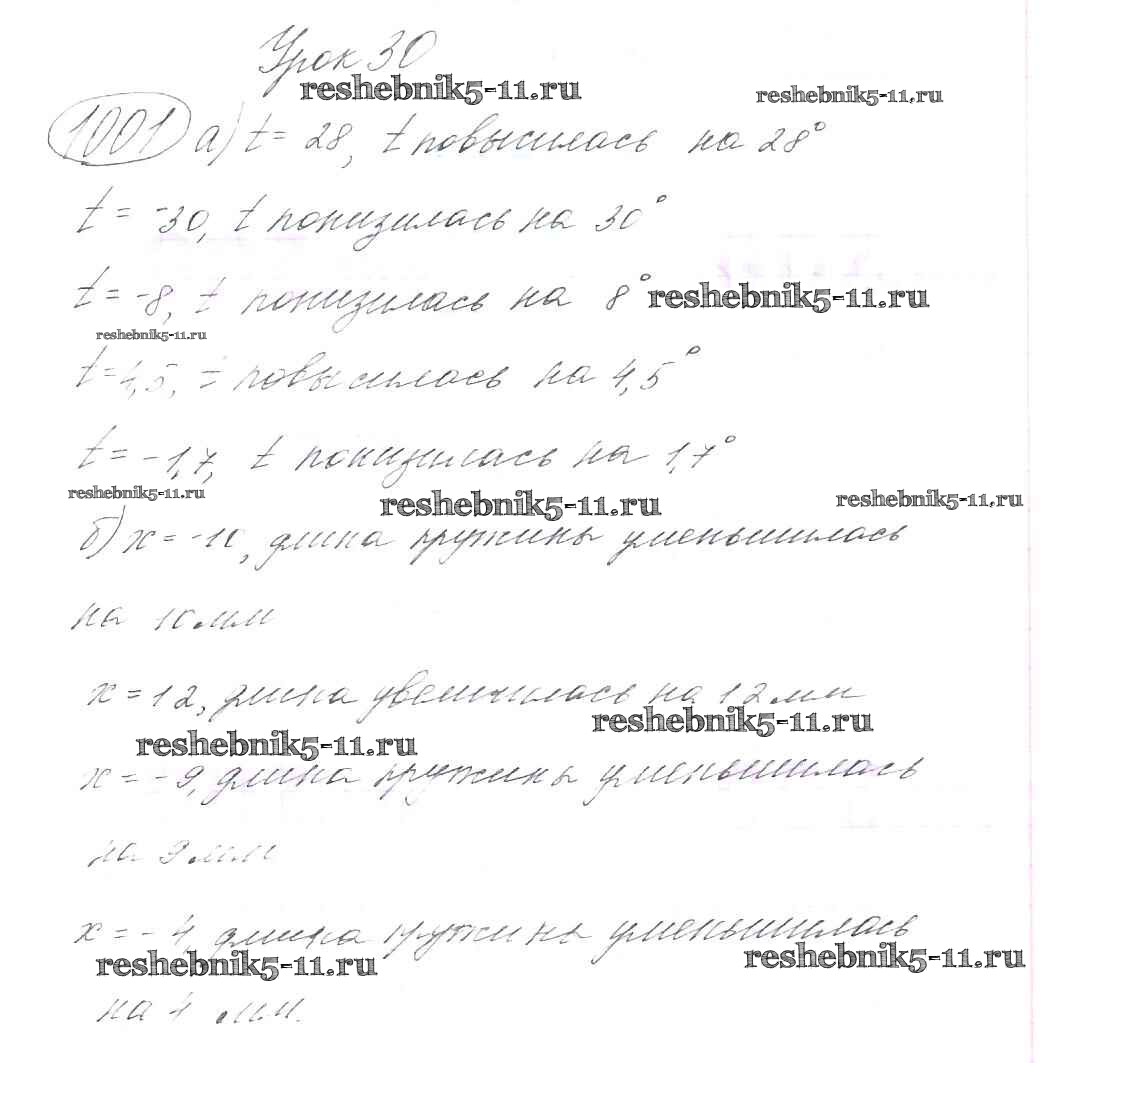 Урок 30
reshebnik5-11.ru
reshebnik5-11.ru
1001 а) t = 28, t повысилась на 28°
t = -30, t понизилась на 30°
t = -8, t понизилась на 8°
reshebnik5-11.ru
reshebnik5-11.ru
t = 4,5, t повысилась на 4,5°
t = -1,7, t понизилась на 1,7°
reshebnik5-11.ru
reshebnik5-11.ru
reshebnik5-11.ru
б) x = -10, длина пружины уменьшилась
на 10 мм
x = 12, длина увеличилась на 12 мм
reshebnik5-11.ru
reshebnik5-11.ru
x = -9, длина пружины уменьшилась
на 9 мм
x = -4, длина пружины уменьшилась
reshebnik5-11.ru
reshebnik5-11.ru
на 4 мм.